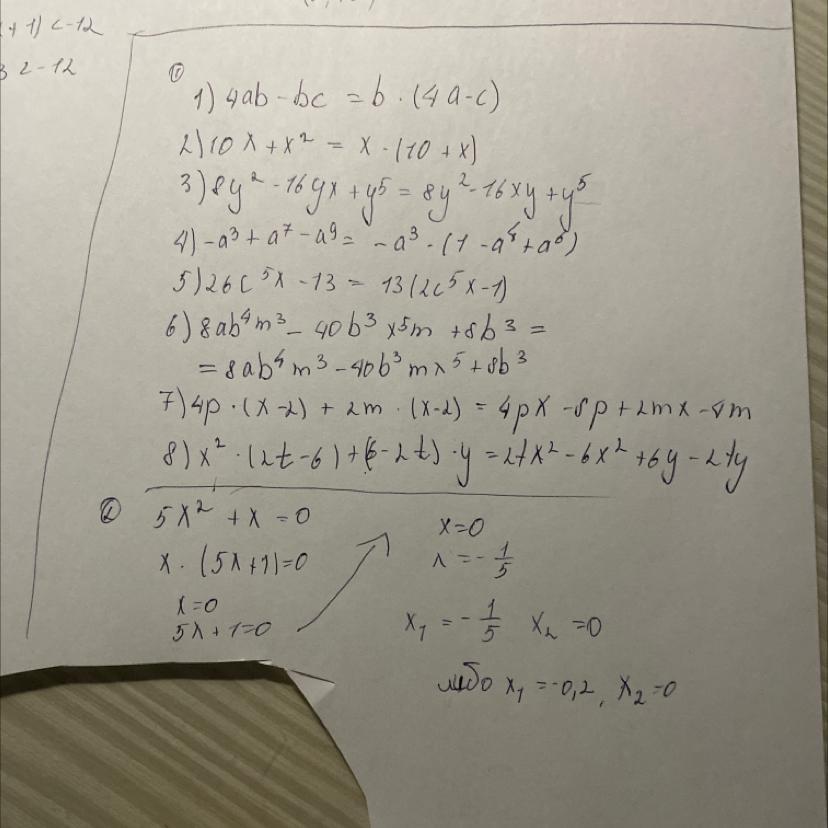 + 1) < -12
< -12
①
1) 4ab - bc = b · (4a - c)
2) 10x + x² = x · (10 + x)
3) 8y² - 16yx + y⁵ = 8y² - 16xy + y⁵
4) -a³ + a⁷ - a⁹ = -a³ · (1 - a⁴ + a⁶)
5) 26c⁵x - 13 = 13(2c⁵x - 1)
6) 8ab⁴m³ - 40b³x⁵m + 8b³ =
= 8ab⁴m³ - 40b³mx⁵ + 8b³
7) 4p · (x - 2) + 2m · (x - 2) = 4px - 8p + 2mx - 4m
8) x² · (2t - 6) + (6 - 2t) · y = 2tx² - 6x² + 6y - 2ty
② 5x² + x = 0
x · (5x + 1) = 0
x = 0
5x + 1 = 0
x = 0
x = -1/5
x₁ = -1/5 x₂ = 0
либо x₁ = -0,2, x₂ = 0